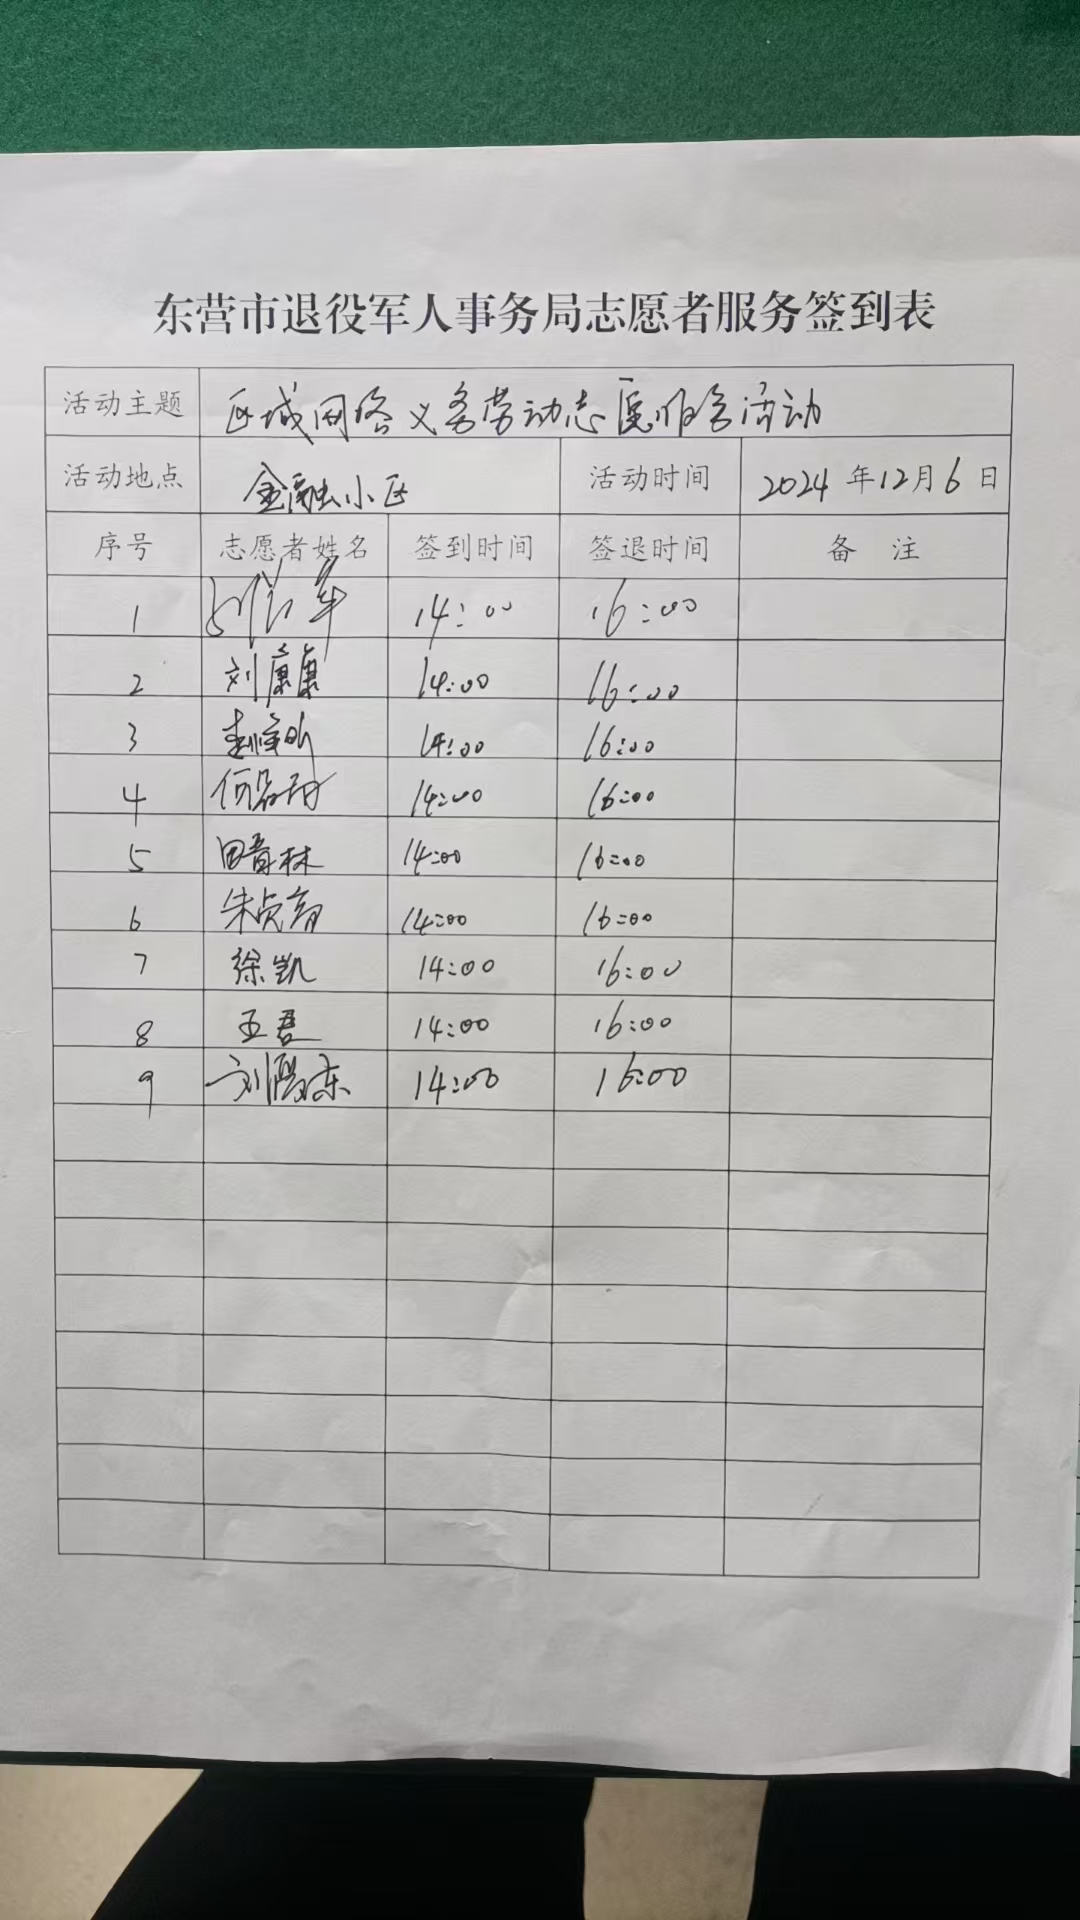 东营市退役军人事务局志愿者服务签到表
活动主题 区域网络义务劳动志愿服务活动
活动地点 金融小区 活动时间 2024年12月6日
序号 志愿者姓名 签到时间 签退时间 备注
1 14:00 16:00
2 刘康康 14:00 16:00
3 14:00 16:00
4 14:00 16:00
5 田青林 14:00 16:00
6 14:00 16:00
7 徐凯 14:00 16:00
8 王君 14:00 16:00
9 14:00 16:00